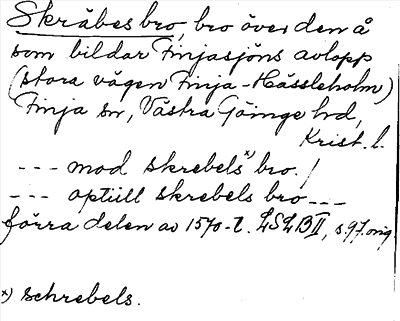 Skräbes bro, bro över den å
som bildar Finjasjöns avlopp
(stora vägen Finja-Hässleholm)
Finja sn, Västra Göinge hd,
Krist. l.
--- mod skrebels x) bro. /
--- optill skrebels bro ---
förra delen av 1570-t. LSLB II, s. 97. orig.
x) schrebels.